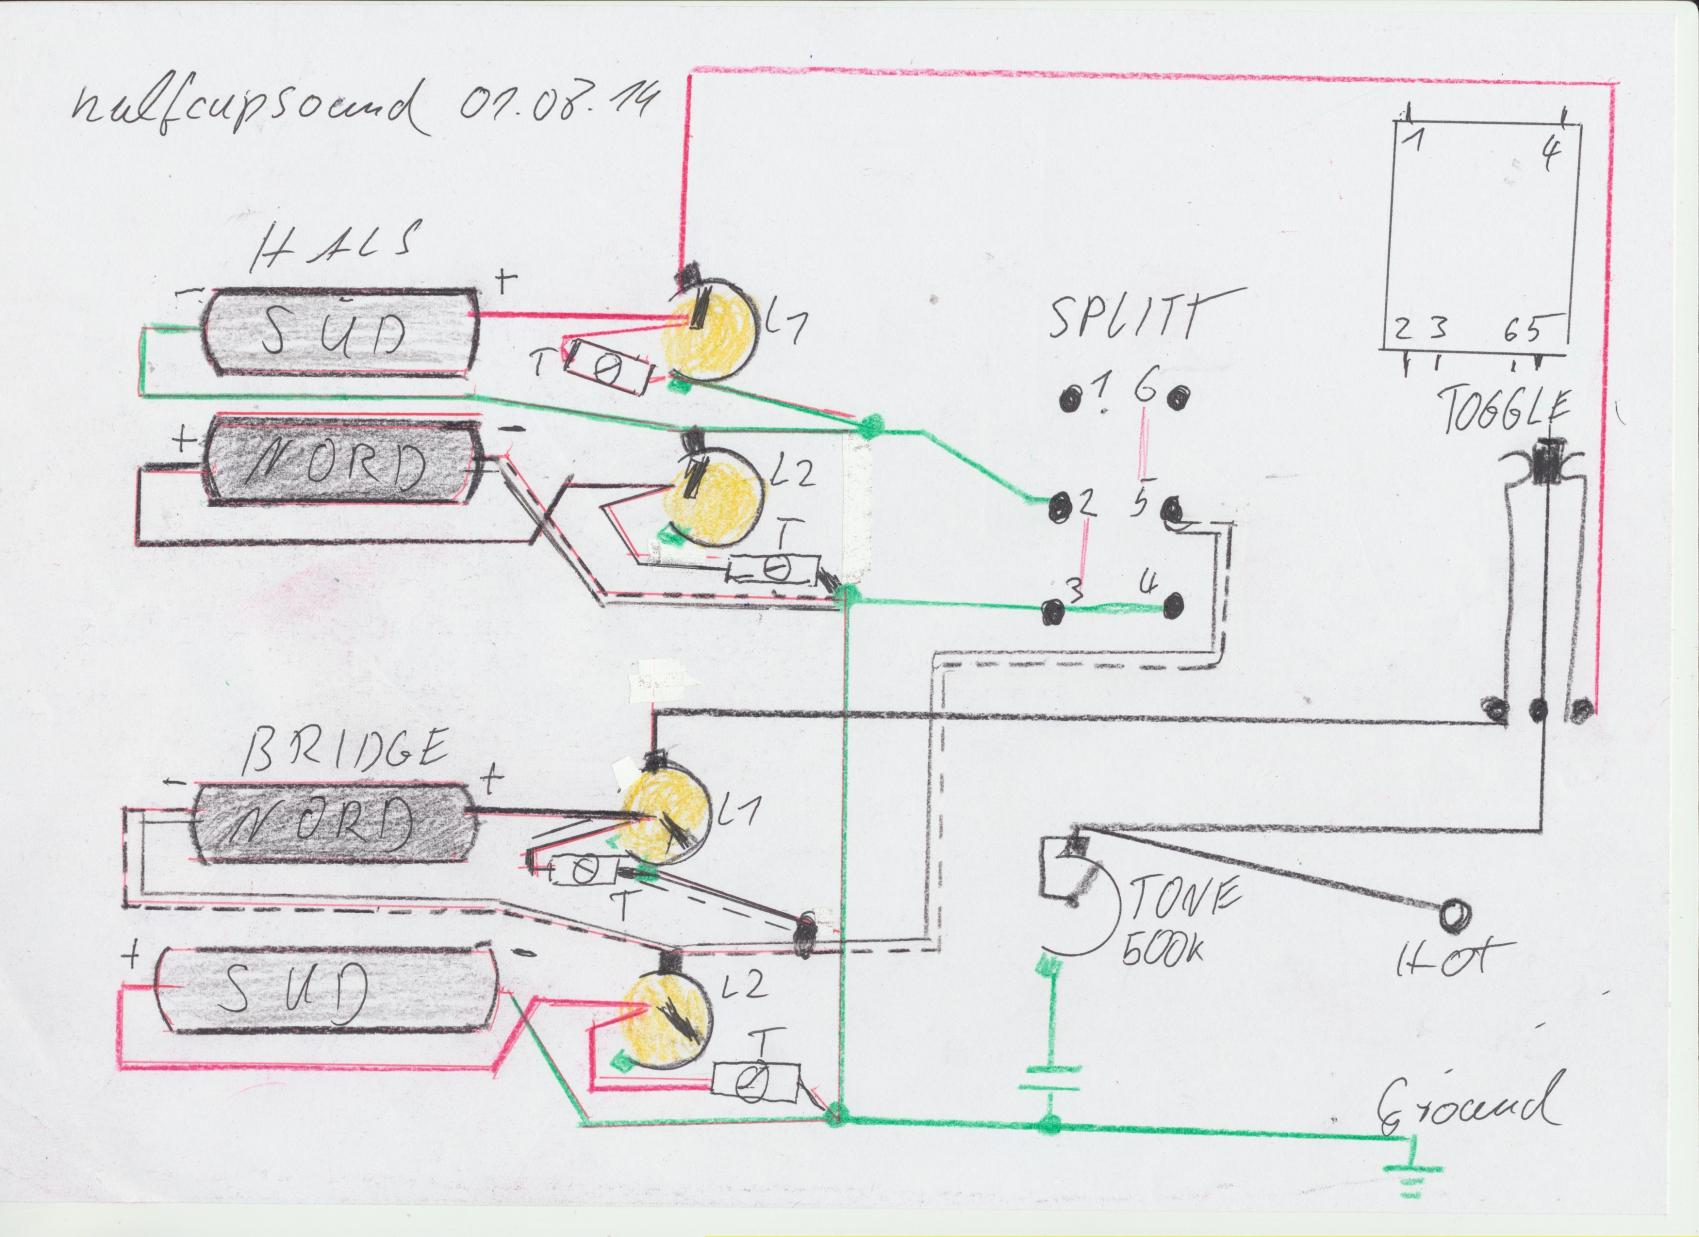 halfcupsound 01.08.14
HALS
- +
SÜD
L1
T
+ -
NORD
L2
T
SPLITT
1 6
2 5
3 4
1 4
2 3 6 5
TOGGLE
BRIDGE
- +
NORD
L1
T
+ -
SUD
L2
T
TONE
500K
Hot
Ground